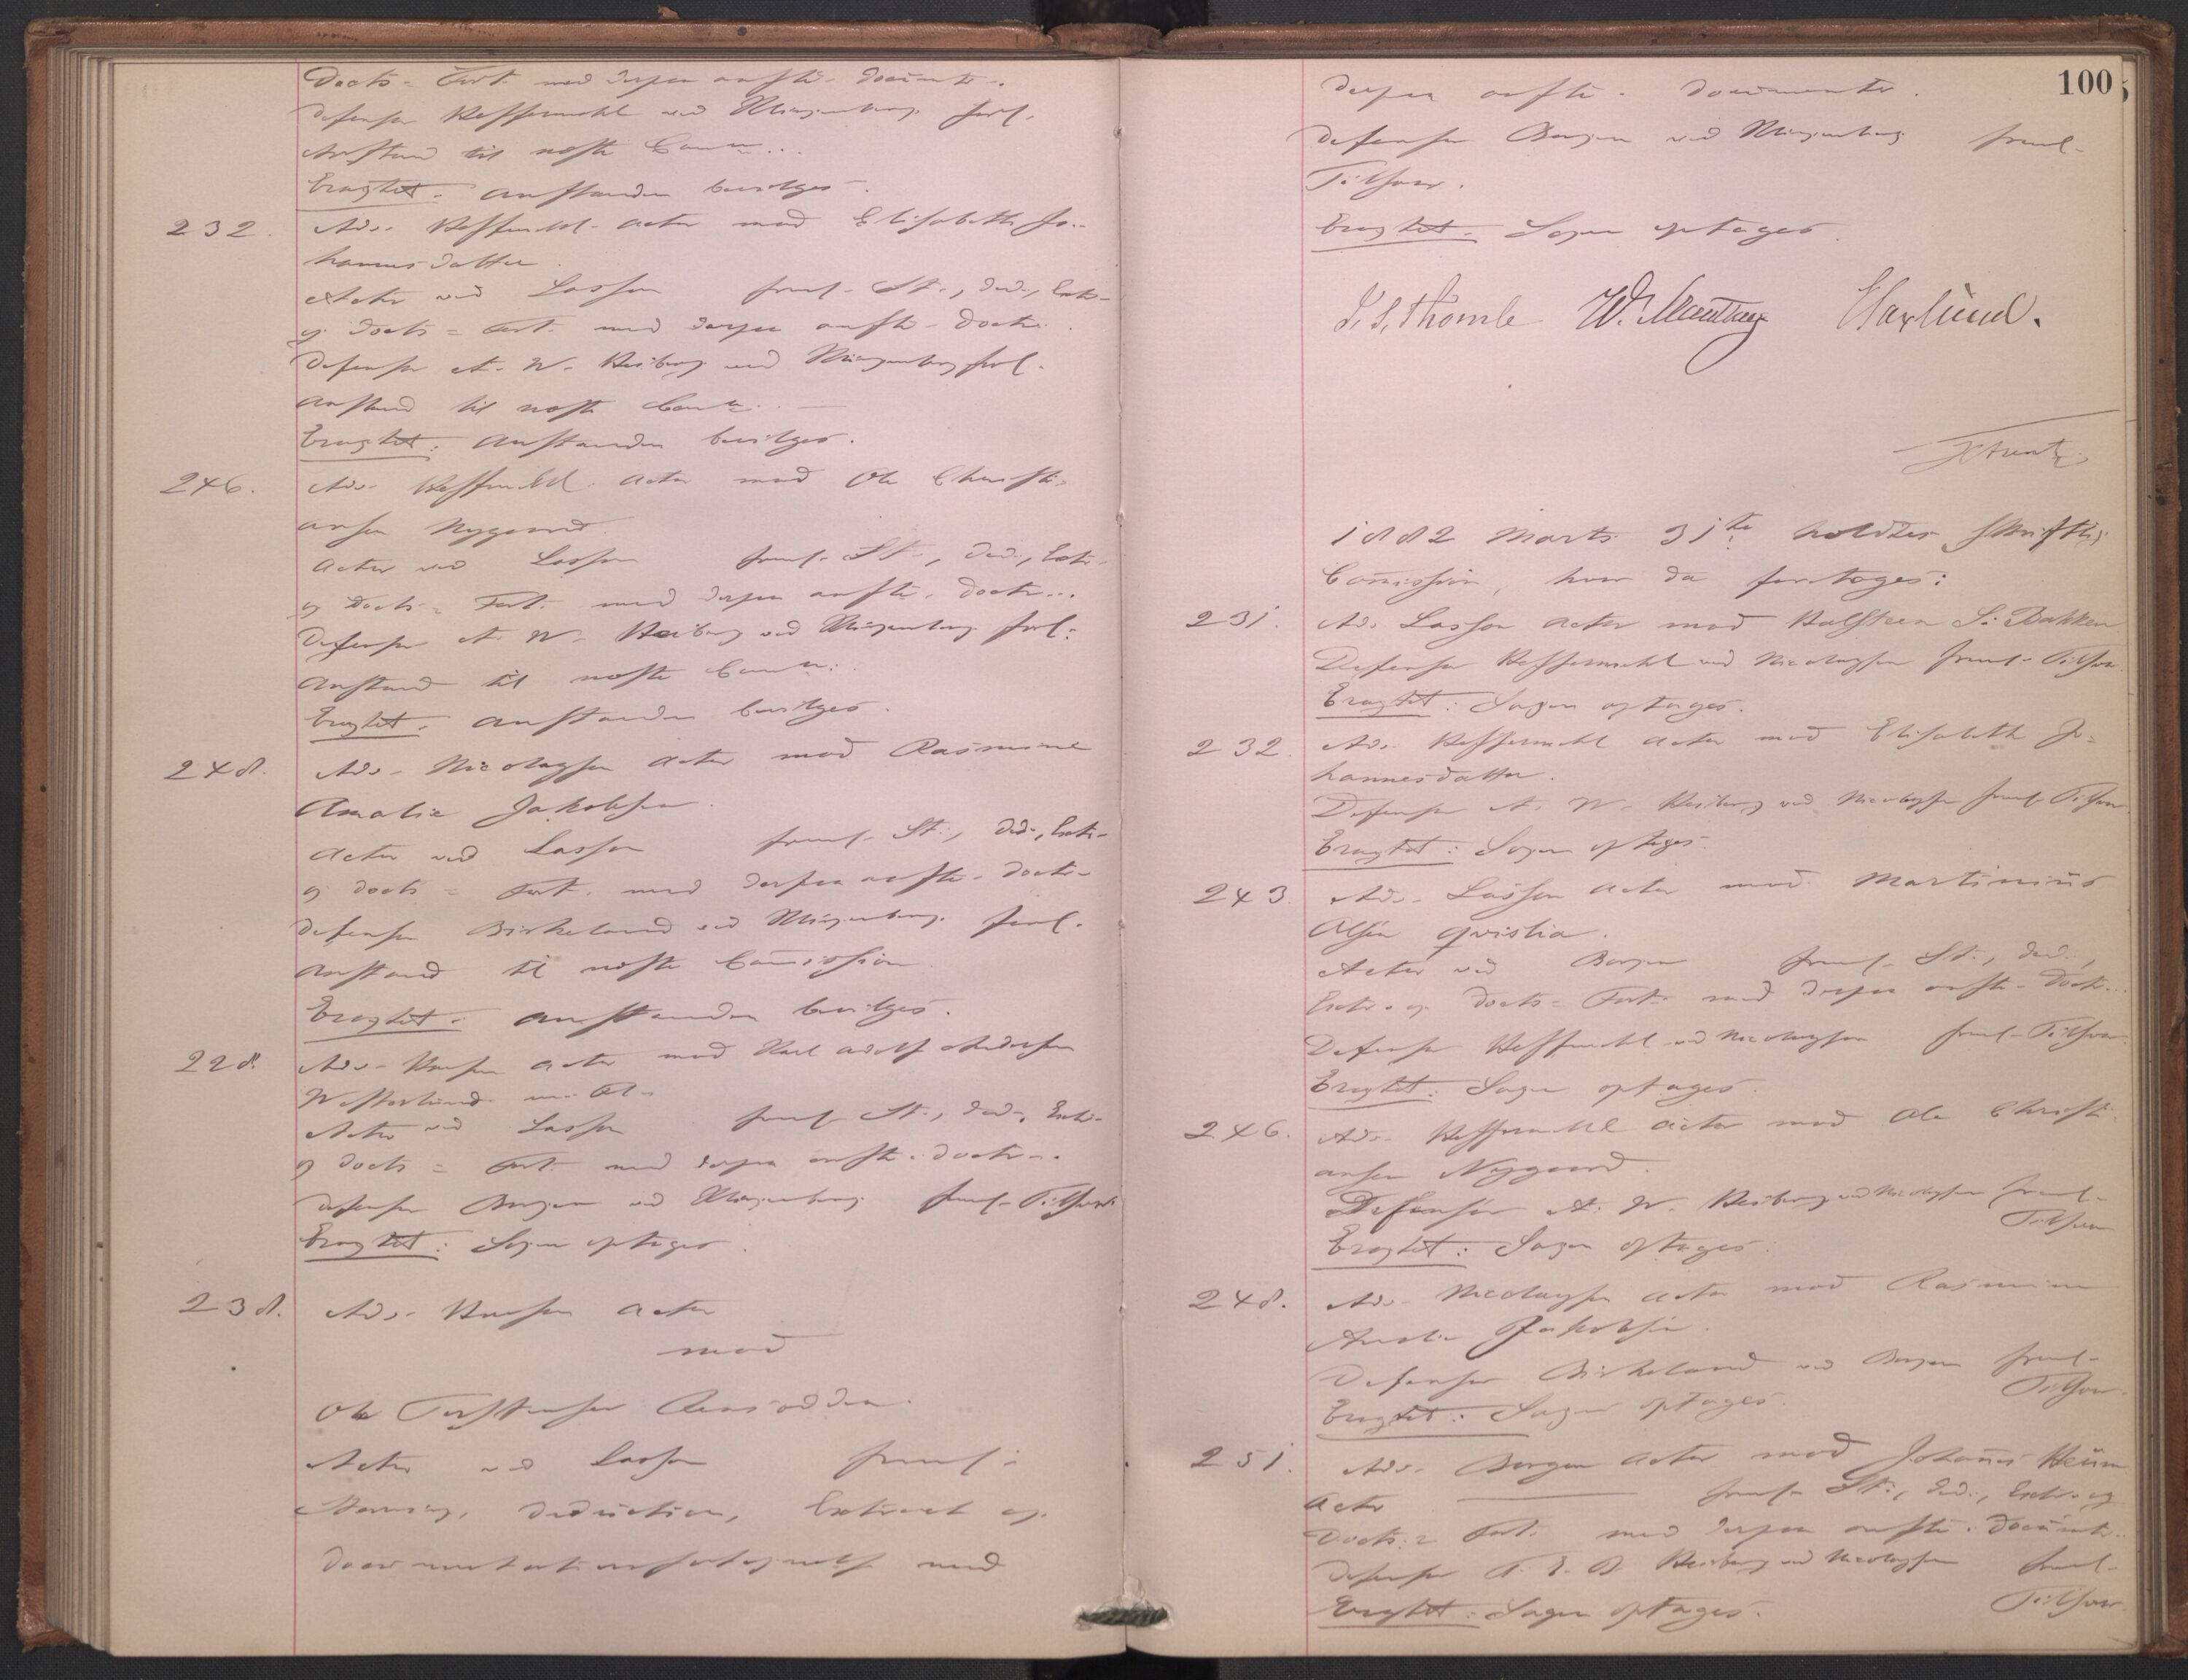 Docts = Fort. med derpaa anfte. Documte.
Defensor Keffermehl ved Klingenberg frel.
Anstand til næste Comm...
Eragtet: Anstanden bevilges.
232. Adv. Keffermehl Actor mod Elisabeth Jo-
hannesdatter.
Actor ved Lasson freml. St., Ded., Extr.
og Docts = Fort. med derpaa anfte. Doctr.
Defensor A. W. Heiberg ved Klingenberg frel.
Anstand til næste Comm.
Eragtet: Anstanden bevilges.
246. Adv. Keffermehl Actor mod Ole Christi-
ansen Nygaard.
Actor ved Lasson freml. St., Ded., Extr.
og Docts = Fort. med derpaa anfte. Doctr...
Defensor A. W. Heiberg ved Klingenberg frel.
Anstand til næste Comm.
Eragtet: Anstanden bevilges.
248. Adv. Nicolaysen Actor mod Rasmine
Amalie Jakobsen.
Actor ved Lasson freml. St., Ded., Extr.
og Docts = Fort. med derpaa anfte. Doctr.
Defensor Birkeland ved Klingenberg frel.
Anstand til næste Commission
Eragtet: Anstanden bevilges.
228. Adv. Actor mod Karl Adolf Andersen
Westerlund m. Fl.
Actor ved Lasson freml. St., Ded., Extr.
og Docts = Fort. med derpaa anfte. Doctr...
Defensor Borgen ved Klingenberg freml. Tilsvar.
Eragtet: Sagen optages.
238. Adv. Actor
mod
Ole Torstensen
Actor ved Lasson freml.
Stævning, Deduction, Extract og
Documentationsfortegnelse med
100
derpaa anfte. Documenter.
Defensor Borgen ved Klingenberg freml.
Tilsvar.
Eragtet: Sagen optages.
Thomle W. Haxlund.
1882 Marts 31te holdtes skriftlig
Commission, hvor da foretoges:
231. Adv. Lasson Actor mod Halsteen S. Bakken
Defensor Keffermehl ved Nicolaysen freml. Tilsvar.
Eragtet: Sagen optages.
232. Adv. Keffermehl Actor mod Elisabeth Jo-
hannesdatter.
Defensor A. W. Heiberg ved Nicolaysen freml. Tilsvar.
Eragtet: Sagen optages.
243. Adv. Lasson Actor mod Martinius
Olsen Qvislia.
Actor ved Borgen freml. St., Ded.,
Extr. og Docts = Fort. med derpaa anfte. Doctr...
Defensor Keffermehl ved Nicolaysen freml. Tilsvar.
Eragtet: Sagen optages.
246. Adv. Keffermehl Actor mod Ole Christi-
ansen Nygaard.
Defensor A. W. Heiberg ved Nicolaysen freml.
Tilsvar
Eragtet: Sagen optages.
248. Adv. Nicolaysen Actor mod Rasmine
Amalie Jakobsen.
Defensor Birkeland ved Borgen freml.
Tilsvar.
Eragtet: Sagen optages.
251. Adv. Borgen Actor mod Johannes Heum
Actor freml. St., Ded., Extr. og
Docts = Fort. med derpaa anfte. Documte.
Defensor A. E. B. Heiberg ved Nicolaysen freml.
Tilsvar
Eragtet: Sagen optages.